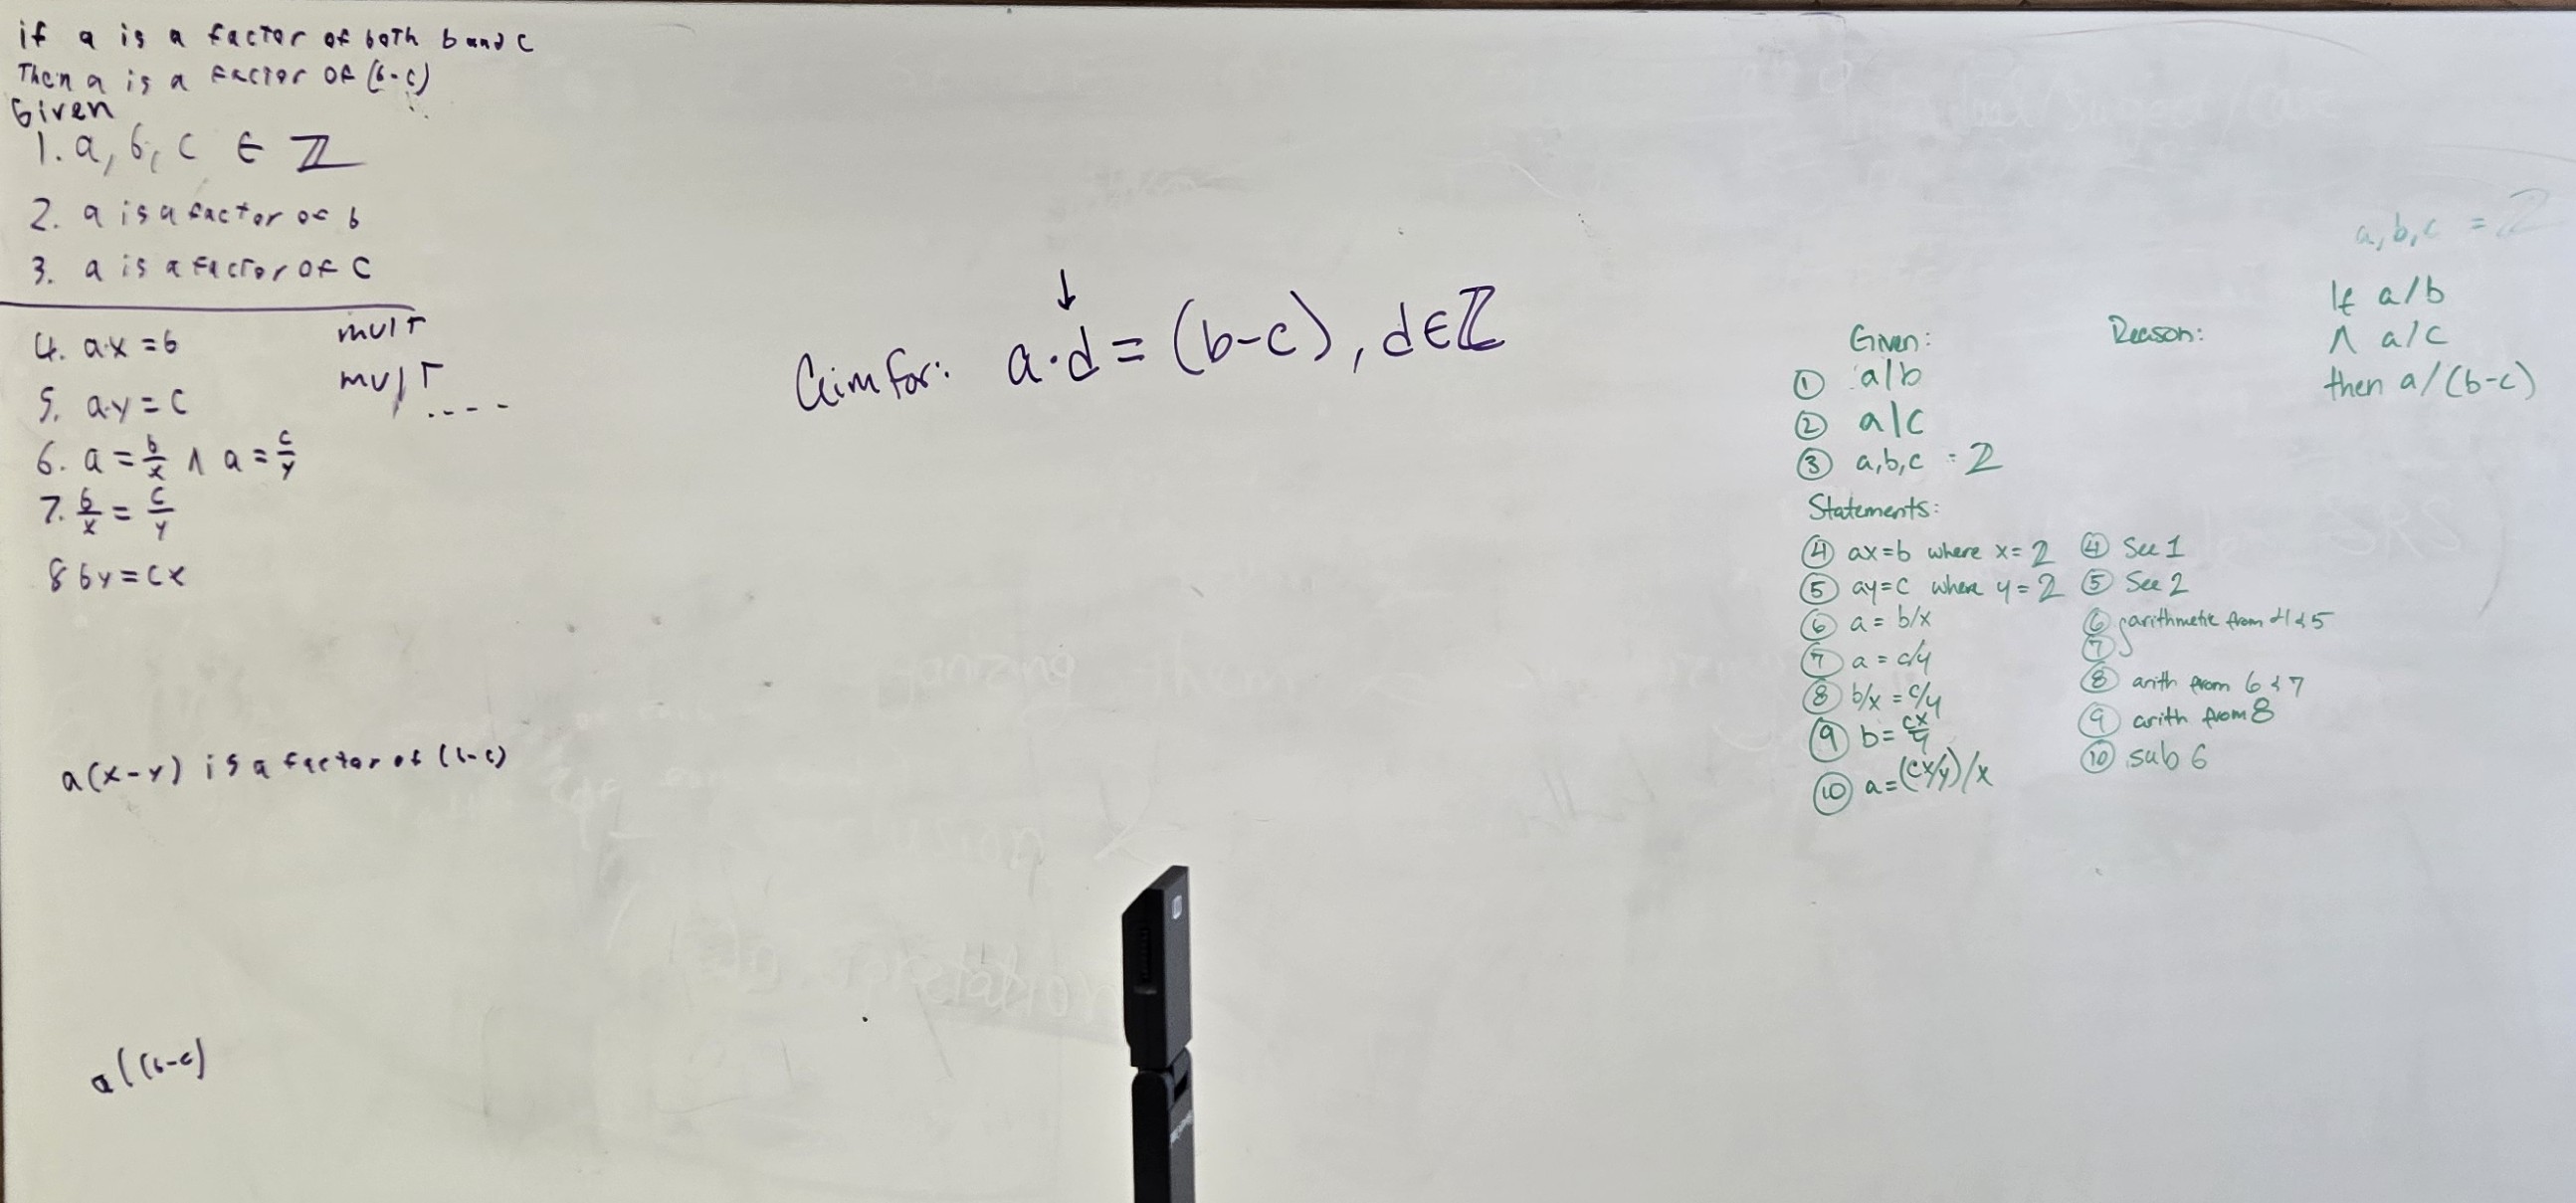 if a is a factor of both b and c
Then a is a factor of (b-c)
Given
1. a, b, c ∈ ℤ
2. a is a factor of b
3. a is a factor of c
4. a·x = b mult
5. a·y = c mult ....
6. a = b/x ∧ a = c/y
7. b/x = c/y
8 by = cx
a(x-y) is a factor of (b-c)
a|(b-c)
↓
aim for: a·d = (b-c), d∈ℤ
a, b, c = ℤ
If a/b
∧ a/c
then a/(b-c)
Given: Reason:
① a|b
② a|c
③ a,b,c = ℤ
Statements:
④ ax=b where x=ℤ ④ See 1
⑤ ay=c where y=ℤ ⑤ See 2
⑥ a = b/x ⑥ arithmetic from 4 & 5
⑦ a = c/y ⑦
⑧ b/x = c/y ⑧ arith from 6 & 7
⑨ b = cx/y ⑨ arith from 8
⑩ a = (cx/y)/x ⑩ sub 6